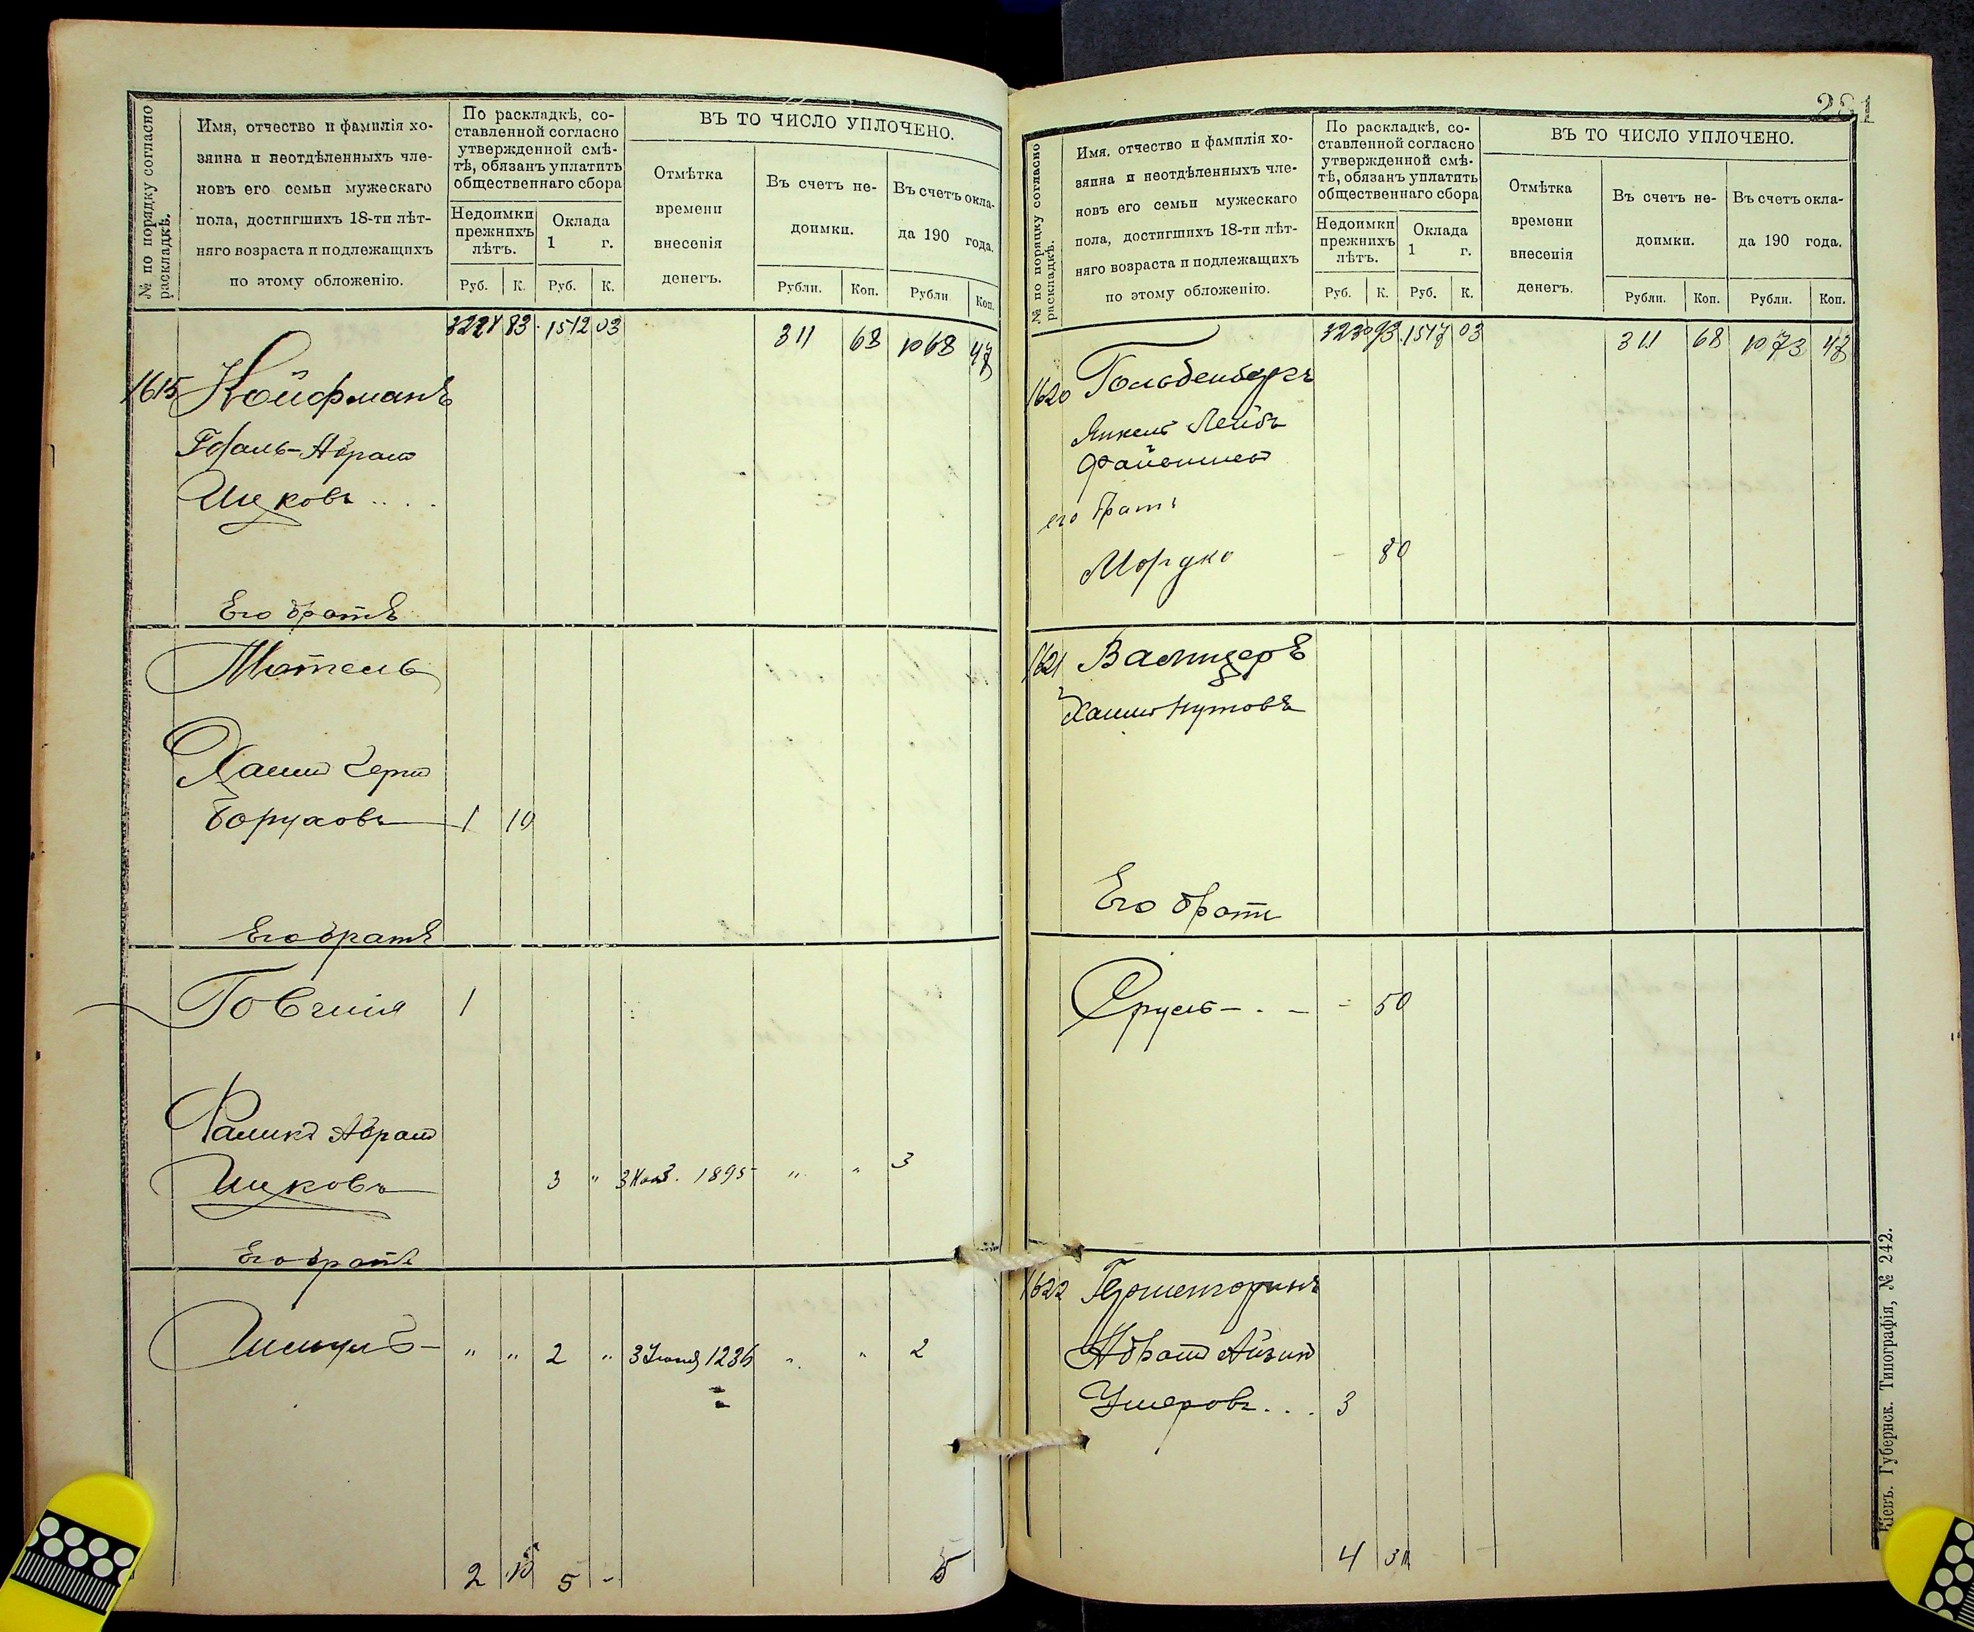 № по порядку согласно раскладкѣ.
Имя, отчество и фамилія хо-
зяина и неотдѣленныхъ чле-
новъ его семьи мужескаго
пола, достигшихъ 18-ти лѣт-
няго возраста и подлежащихъ
по этому обложенію.
По раскладкѣ, со-
ставленной согласно
утвержденной смѣ-
тѣ, обязанъ уплатить
общественнаго сбора
Недоимки
прежнихъ
лѣтъ.
Оклада
1 г.
Руб. К. Руб. К.
ВЪ ТО ЧИСЛО УПЛОЧЕНО.
Отмѣтка
времени
внесенія
денегъ.
Въ счетъ не-
доимки.
Въ счетъ окла-
да 190 года.
Рубли. Коп. Рубли Коп.
83 1512 03 311 68 1068 47
1615 Койфманъ
Абрам
Ицковъ . . .
Его братъ
Мотель
Хаим Герш
Боруховъ 1 10
Его братъ
Товгшія 1
Фаликъ Абрам
Ицковъ 3 " 3 1895 " " 3
Его братъ
Шмуль - " " 2 " 3 " " 2
2 10 5 - 5
281
№ по порядку согласно раскладкѣ.
Имя, отчество и фамилія хо-
зяина и неотдѣленныхъ чле-
новъ его семьи мужескаго
пола, достигшихъ 18-ти лѣт-
няго возраста и подлежащихъ
по этому обложенію.
По раскладкѣ, со-
ставленной согласно
утвержденной смѣ-
тѣ, обязанъ уплатить
общественнаго сбора
Недоимки
прежнихъ
лѣтъ.
Оклада
1 г.
Руб. К. Руб. К.
ВЪ ТО ЧИСЛО УПЛОЧЕНО.
Отмѣтка
времени
внесенія
денегъ.
Въ счетъ не-
доимки.
Въ счетъ окла-
да 190 года.
Рубли. Коп. Рубли. Коп.
3230 93 1517 03 311 68 1073 47
1620
Янкель Лейбъ
его братъ
Мордко - 80
1621
Хаим Нутовъ
Его братъ
Сруль - . - - 50
1622
Абрам Айзик
Ушеровъ . . . 3
4 30
Кіевъ. Губернск. Типографія, № 242.